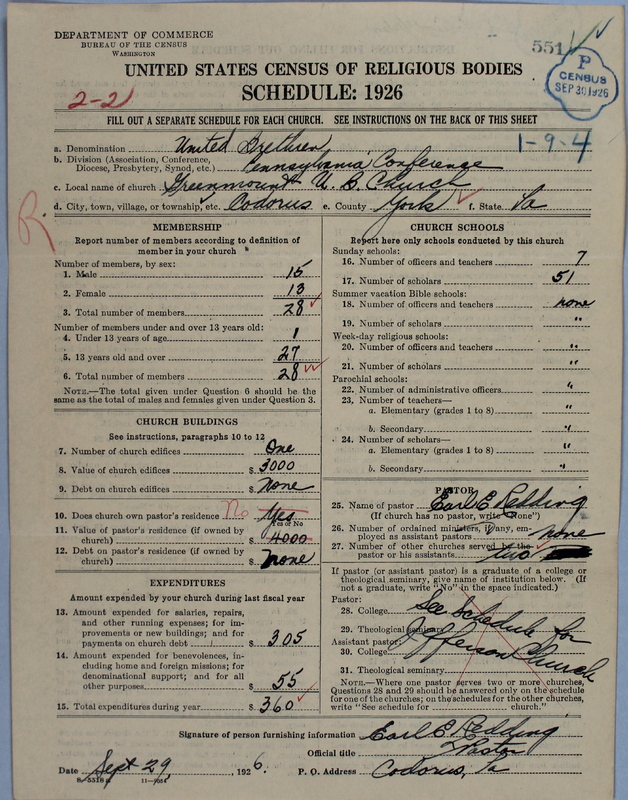 DEPARTMENT OF COMMERCE
BUREAU OF THE CENSUS
WASHINGTON
551
P
CENSUS
SEP 30 1926
UNITED STATES CENSUS OF RELIGIOUS BODIES
2-21
SCHEDULE: 1926
FILL OUT A SEPARATE SCHEDULE FOR EACH CHURCH. SEE INSTRUCTIONS ON THE BACK OF THIS SHEET
1-9-4
a. Denomination United Brethren
b. Division (Association, Conference, Diocese, Presbytery, Synod, etc.) Pennsylvania Conference
c. Local name of church Greenmount U. B. Church
d. City, town, village, or township, etc. Codorus e. County York f. State Pa
R
MEMBERSHIP
Report number of members according to definition of member in your church
Number of members, by sex:
1. Male 15
2. Female 13
3. Total number of members 28
Number of members under and over 13 years old:
4. Under 13 years of age 1
5. 13 years old and over 27
6. Total number of members 28
NOTE.—The total given under Question 6 should be the same as the total of males and females given under Question 3.
CHURCH BUILDINGS
See instructions, paragraphs 10 to 12
7. Number of church edifices One
8. Value of church edifices $ 3000
9. Debt on church edifices $ None
10. Does church own pastor's residence No Yes
Yes or No
11. Value of pastor's residence (if owned by church) $ 4000
12. Debt on pastor's residence (if owned by church) $ none
EXPENDITURES
Amount expended by your church during last fiscal year
13. Amount expended for salaries, repairs, and other running expenses; for improvements or new buildings; and for payments on church debt $ 305
14. Amount expended for benevolences, including home and foreign missions; for denominational support; and for all other purposes $ 55
15. Total expenditures during year $ 360
CHURCH SCHOOLS
Report here only schools conducted by this church
Sunday schools:
16. Number of officers and teachers 7
17. Number of scholars 51
Summer vacation Bible schools:
18. Number of officers and teachers none
19. Number of scholars "
Week-day religious schools:
20. Number of officers and teachers "
21. Number of scholars "
Parochial schools:
22. Number of administrative officers "
23. Number of teachers—
a. Elementary (grades 1 to 8) "
b. Secondary "
24. Number of scholars—
a. Elementary (grades 1 to 8) "
b. Secondary "
PASTOR
25. Name of pastor Earl E. Redding
(If church has no pastor, write "None")
26. Number of ordained ministers, if any, employed as assistant pastors none
27. Number of other churches served by the pastor or his assistants two
If pastor (or assistant pastor) is a graduate of a college or theological seminary, give name of institution below. (If not a graduate, write "No" in the space indicated.)
Pastor:
28. College See Schedule for
29. Theological seminary
Assistant pastor: Jefferson Church
30. College
31. Theological seminary
NOTE.—Where one pastor serves two or more churches, Questions 28 and 29 should be answered only on the schedule for one of the churches; on the schedules for the other churches, write "See schedule for church."
Signature of person furnishing information Earl E. Redding
Official title Pastor
Date Sept 29, 1926. P. O. Address Codorus, Pa